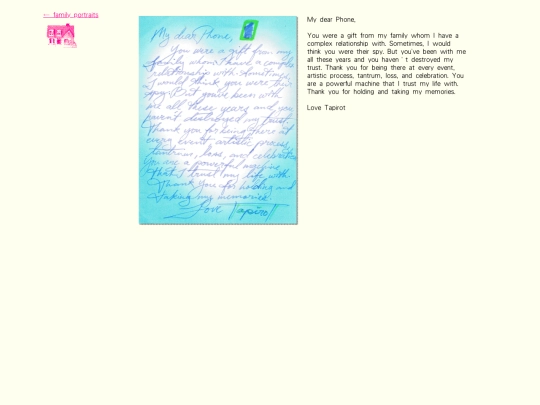 ← family portraits
My dear Phone,
You were a gift from my
family whom I have a complex
relationship with. Sometimes,
I would think you were their
spy. But you've been with
me all these years and you
haven't destroyed my trust.
Thank you for being there at
every event, artistic process,
tantrum, loss, and celebration.
You are a powerful machine
that I trust my life with.
Thank you for holding and
taking my memories.
Love Tapirot
My dear Phone,
You were a gift from my family whom I have a
complex relationship with. Sometimes, I would
think you were their spy. But you've been with me
all these years and you haven't destroyed my
trust. Thank you for being there at every event,
artistic process, tantrum, loss, and celebration. You
are a powerful machine that I trust my life with.
Thank you for holding and taking my memories.
Love Tapirot